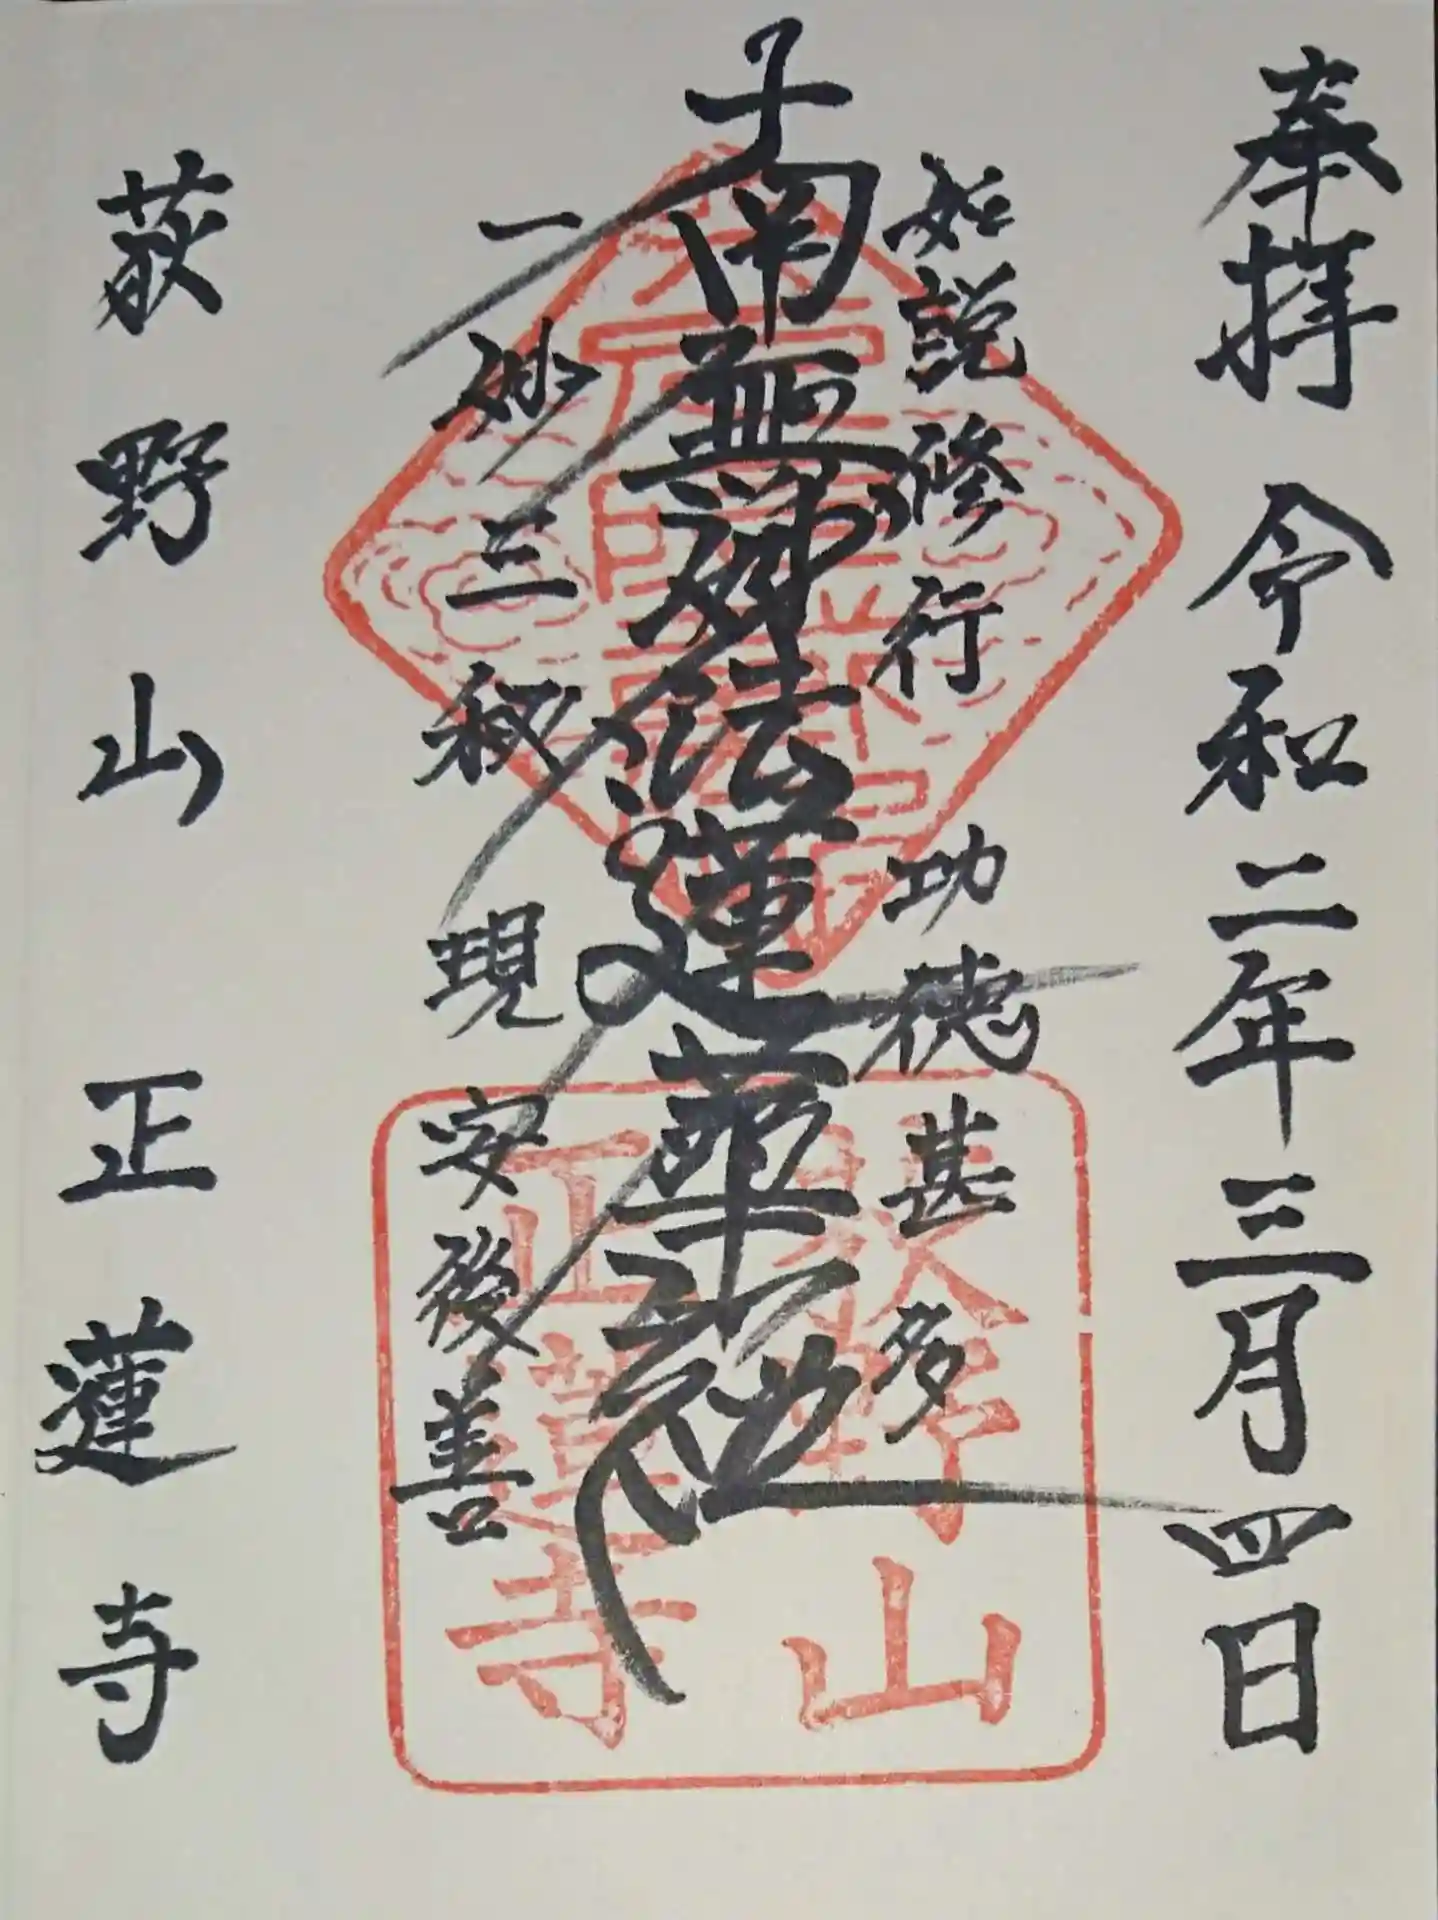 奉拝 令和二年三月四日
如説修行 功徳甚多
南無妙法蓮華経
一妙三秘 現安後善
荻野山 正蓮寺
荻野山
正蓮寺